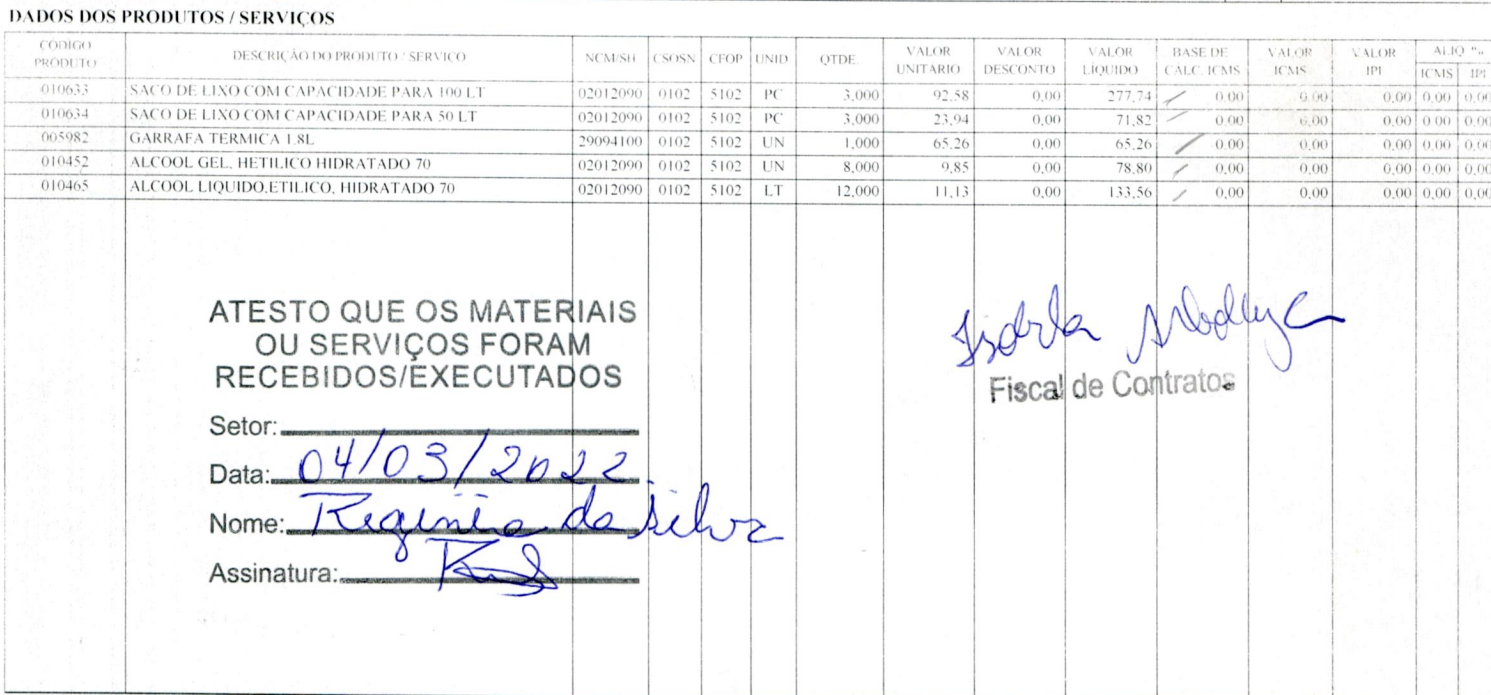 DADOS DOS PRODUTOS / SERVIÇOS
CODIGO PRODUTO DESCRIÇÃO DO PRODUTO / SERVIÇO NCM/SH CSOSN CFOP UNID QTDE. VALOR UNITARIO VALOR DESCONTO VALOR LIQUIDO BASE DE CALC. ICMS VALOR ICMS VALOR IPI ALIQ % ICMS IPI
010633 SACO DE LIXO COM CAPACIDADE PARA 100 LT 02012090 0102 5102 PC 3,000 92,58 0,00 277,74 0,00 0,00 0,00 0,00 0,00
010634 SACO DE LIXO COM CAPACIDADE PARA 50 LT 02012090 0102 5102 PC 3,000 23,94 0,00 71,82 0,00 0,00 0,00 0,00 0,00
005982 GARRAFA TERMICA 1.8L 29094100 0102 5102 UN 1,000 65,26 0,00 65,26 0,00 0,00 0,00 0,00 0,00
010452 ALCOOL GEL, HETILICO HIDRATADO 70 02012090 0102 5102 UN 8,000 9,85 0,00 78,80 0,00 0,00 0,00 0,00 0,00
010465 ALCOOL LIQUIDO,ETILICO, HIDRATADO 70 02012090 0102 5102 LT 12,000 11,13 0,00 133,56 0,00 0,00 0,00 0,00 0,00
ATESTO QUE OS MATERIAIS
OU SERVIÇOS FORAM
RECEBIDOS/EXECUTADOS
Fiscal de Contratos
Setor:
Data: 04/03/2022
Nome: da Silva
Assinatura: